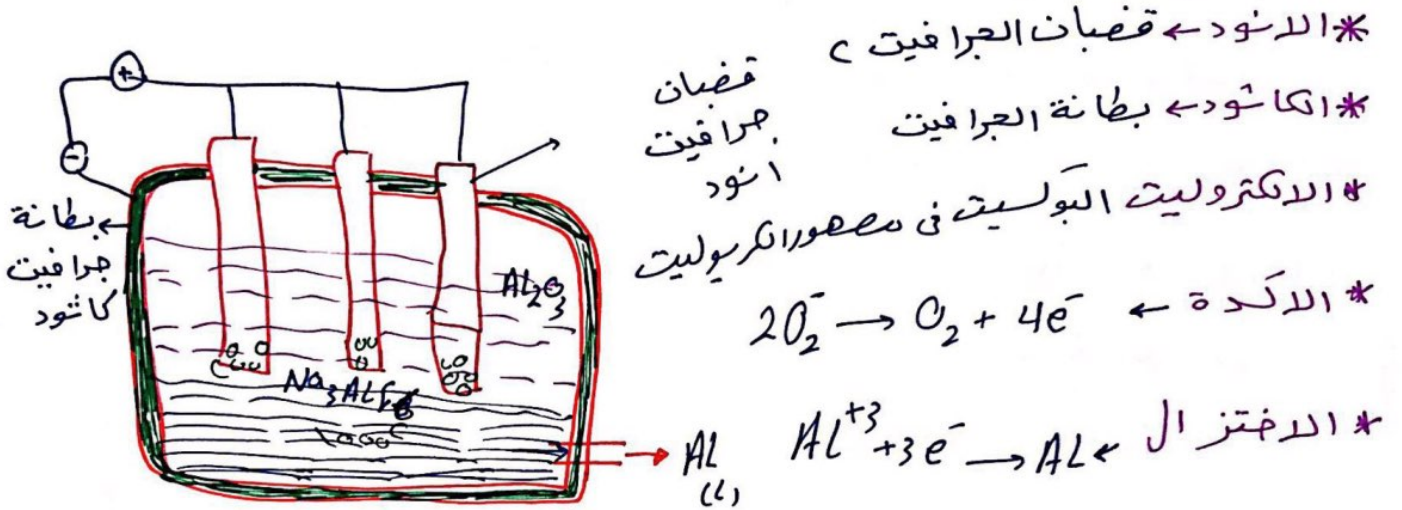 * الانود ← قضبان الجرافيت C
* الكاثود ← بطانة الجرافيت
* الالكتروليت البوكسيت فى مصهور الكريوليت
* الاكسدة ← 2O₂⁻ → O₂ + 4e⁻
* الاختزال ← Al⁺³ + 3e⁻ → Al
قضبان
جرافيت
انود
+
-
بطانة
جرافيت
كاثود
Al₂O₃
Na₃AlF₆
1000c
Al
(l)